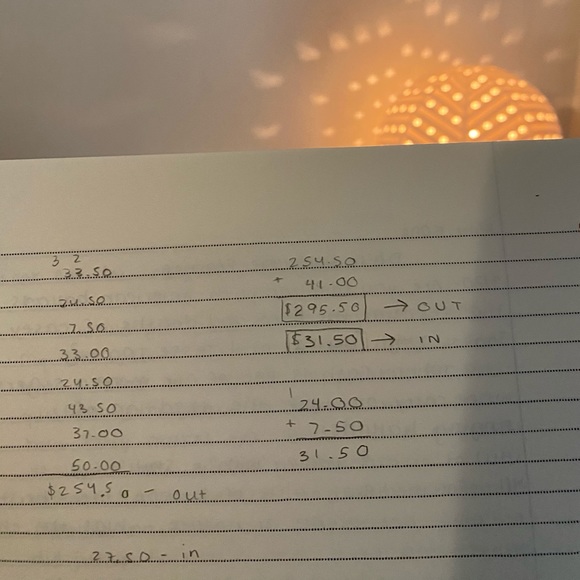 3 2
33.50
24.50
7.50
33.00
24.50
43.50
37.00
50.00
$254.50 - out
27.50 - in
254.50
+ 41.00
$295.50 → OUT
$31.50 → IN
1
24.00
+ 7.50
31.50